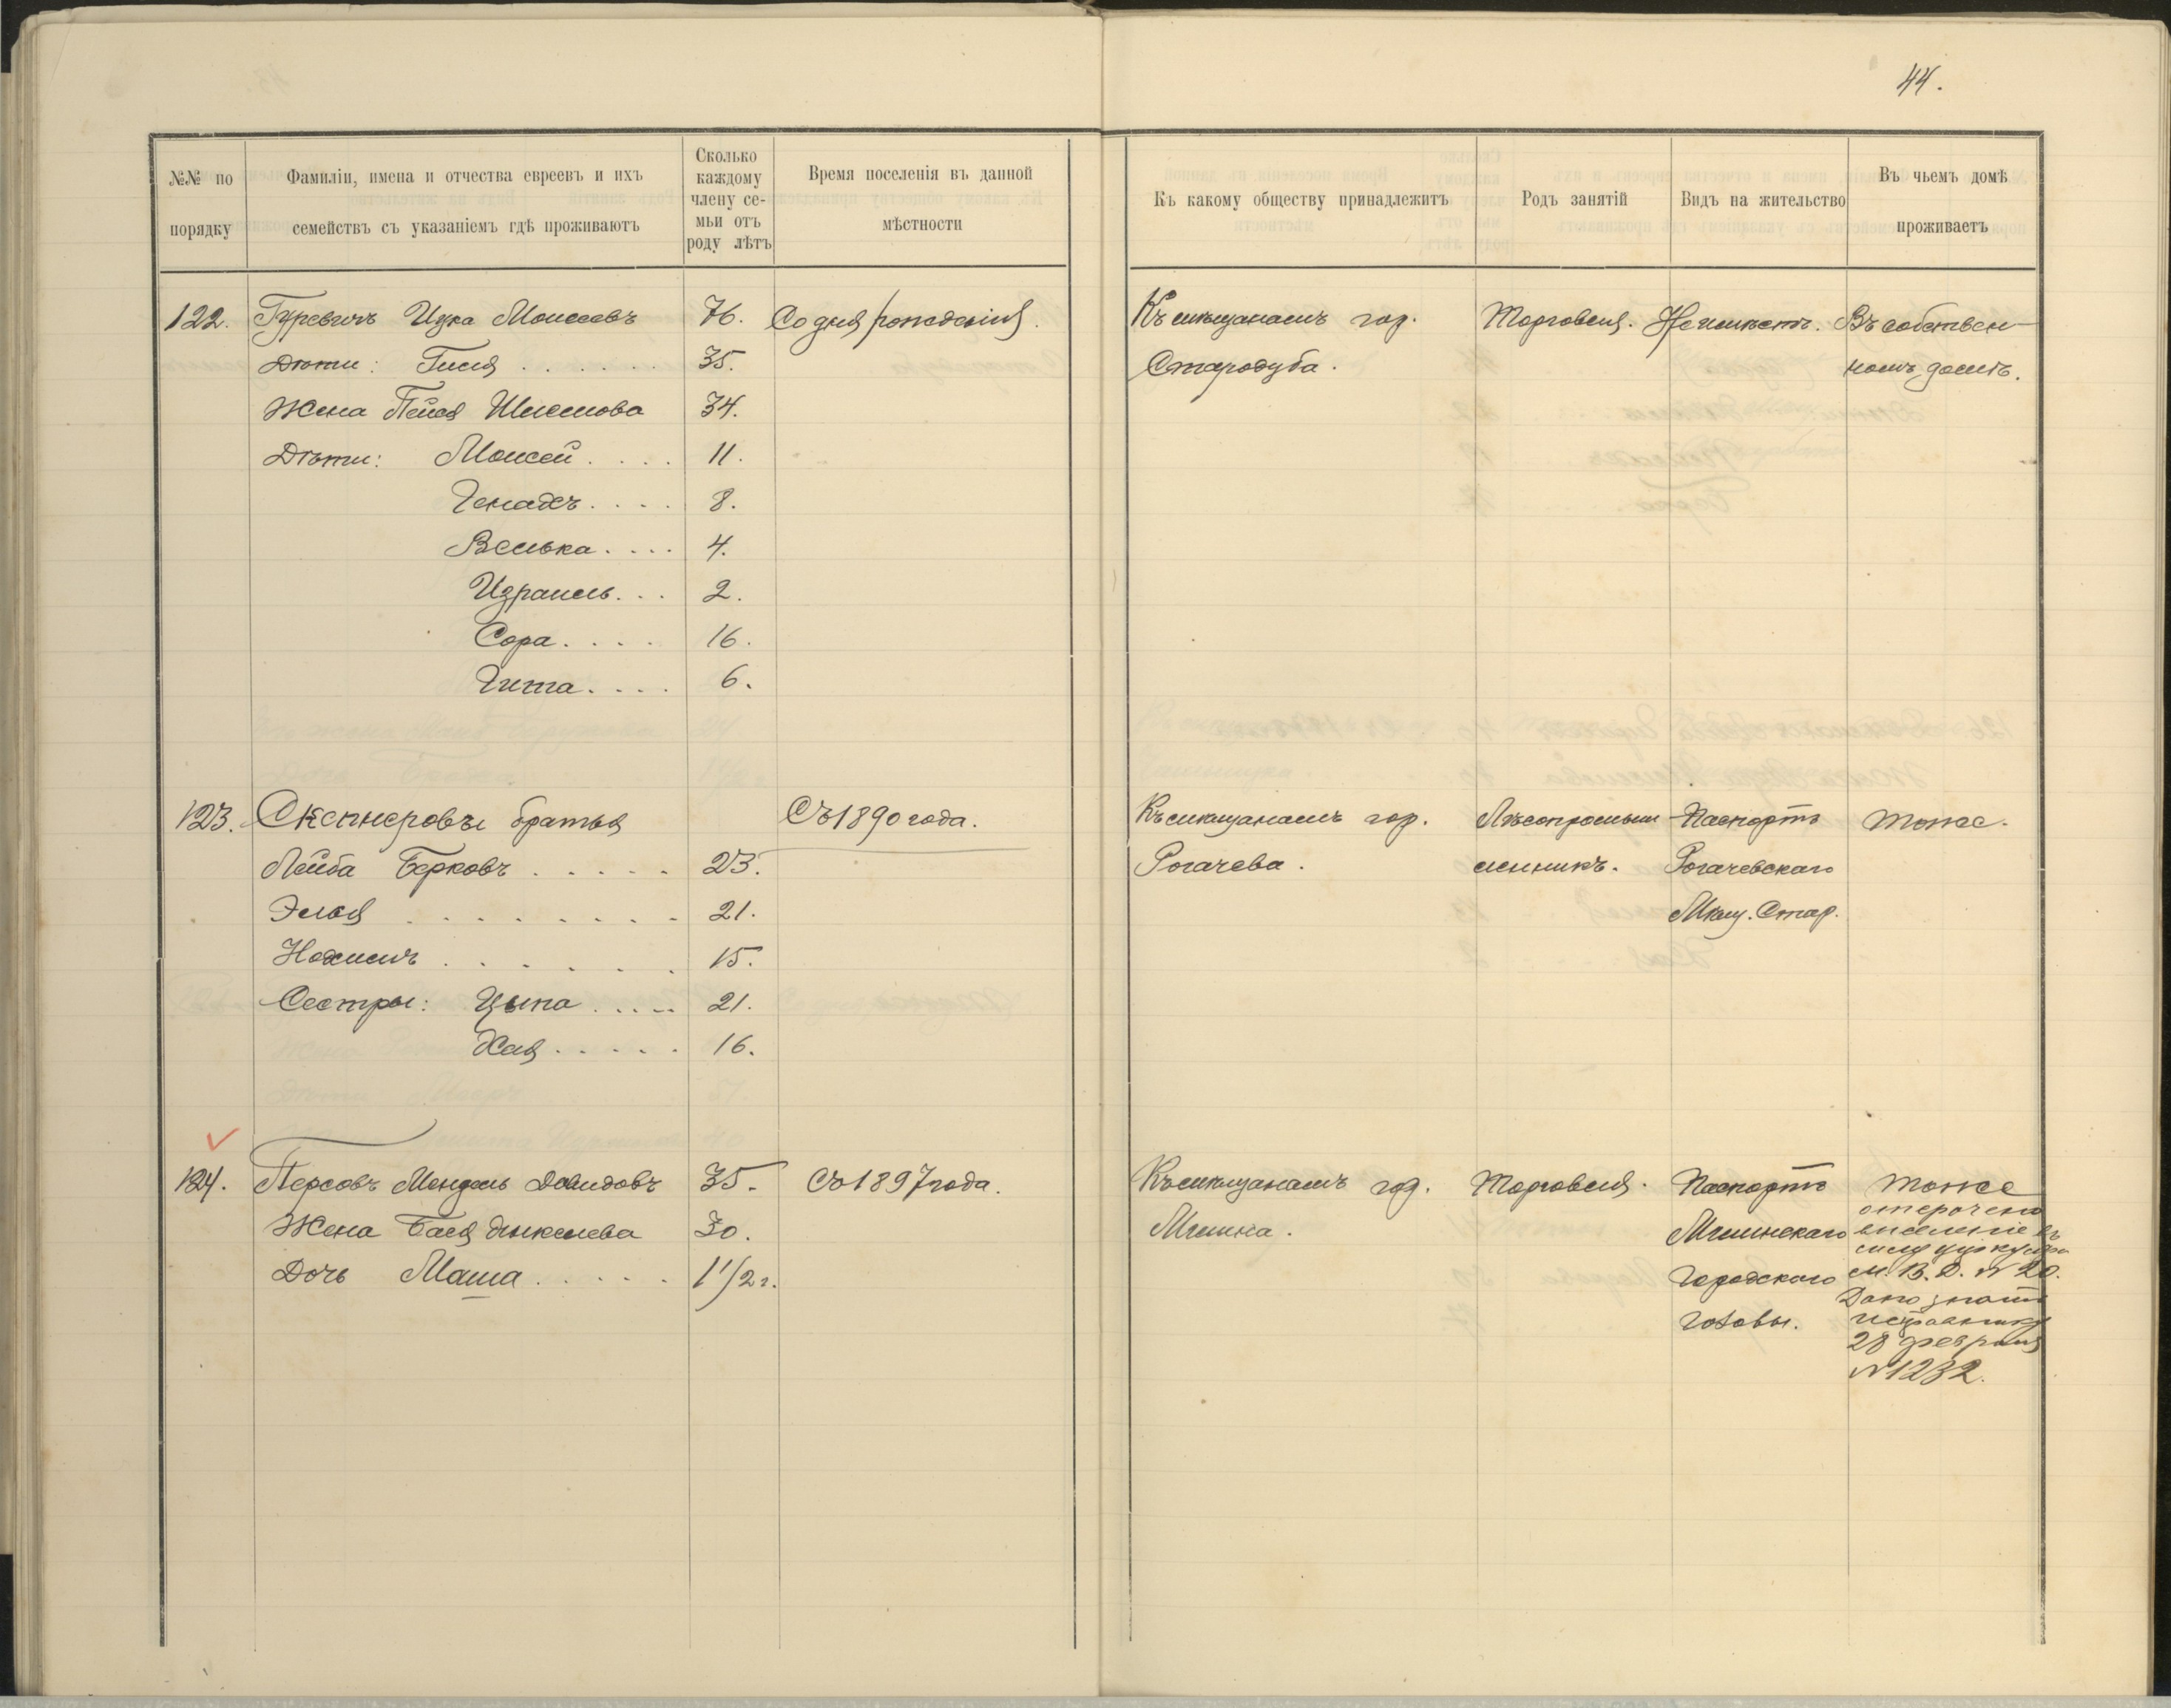 44.
№№ по порядку
Фамиліи, имена и отчества евреевъ и ихъ семействъ съ указаніемъ гдѣ проживаютъ
Сколько каждому члену се-мьи отъ роду лѣтъ
Время поселенія въ данной мѣстности
Къ какому обществу принадлежитъ
Родъ занятій
Видъ на жительство
Въ чьемъ домѣ проживаетъ
122. Гуревичъ Ицка Моисеевъ 76. Со дня рожденія. Къ мѣщанамъ гор. Торговля. Не имѣетъ. Въ собствен-
Дѣти: Гиля . . . . . . 35. Стародуба. номъ домѣ.
Жена Пейся Шлемова 34.
Дѣти: Моисей . . . . 11.
Генадъ . . . . 8.
Велька . . . . 4.
Израиль . . . 2.
Сора . . . . 16.
Гита . . . . 6.
123. братья Съ 1890 года. Къ мѣщанамъ гор. Лѣсопромыш- Паспортъ Тоже.
Лейба Берковъ . . . . . 23. Рогачева. ленникъ. Рогачевскаго
Элья . . . . . . . . 21. Мѣщ. Стар.
Нохимъ . . . . . . 15.
Сестры: Цыпа . . . . 21.
Хая . . . . . 16.
124. Персовъ Мендель Довидовъ 35. Съ 1897 года. Къ мѣщанамъ гор. Торговля. Паспортъ Тоже
Жена Бася 30. Мглина. Мглинскаго
Дочь Маша . . . . . 1 1/2 г. Городскаго
Головы.
отсрочено
выселеніе въ
силу циркуляра
М. В. Д. № 20.
Дано знать
исправнику
28 февраля
№ 1232.